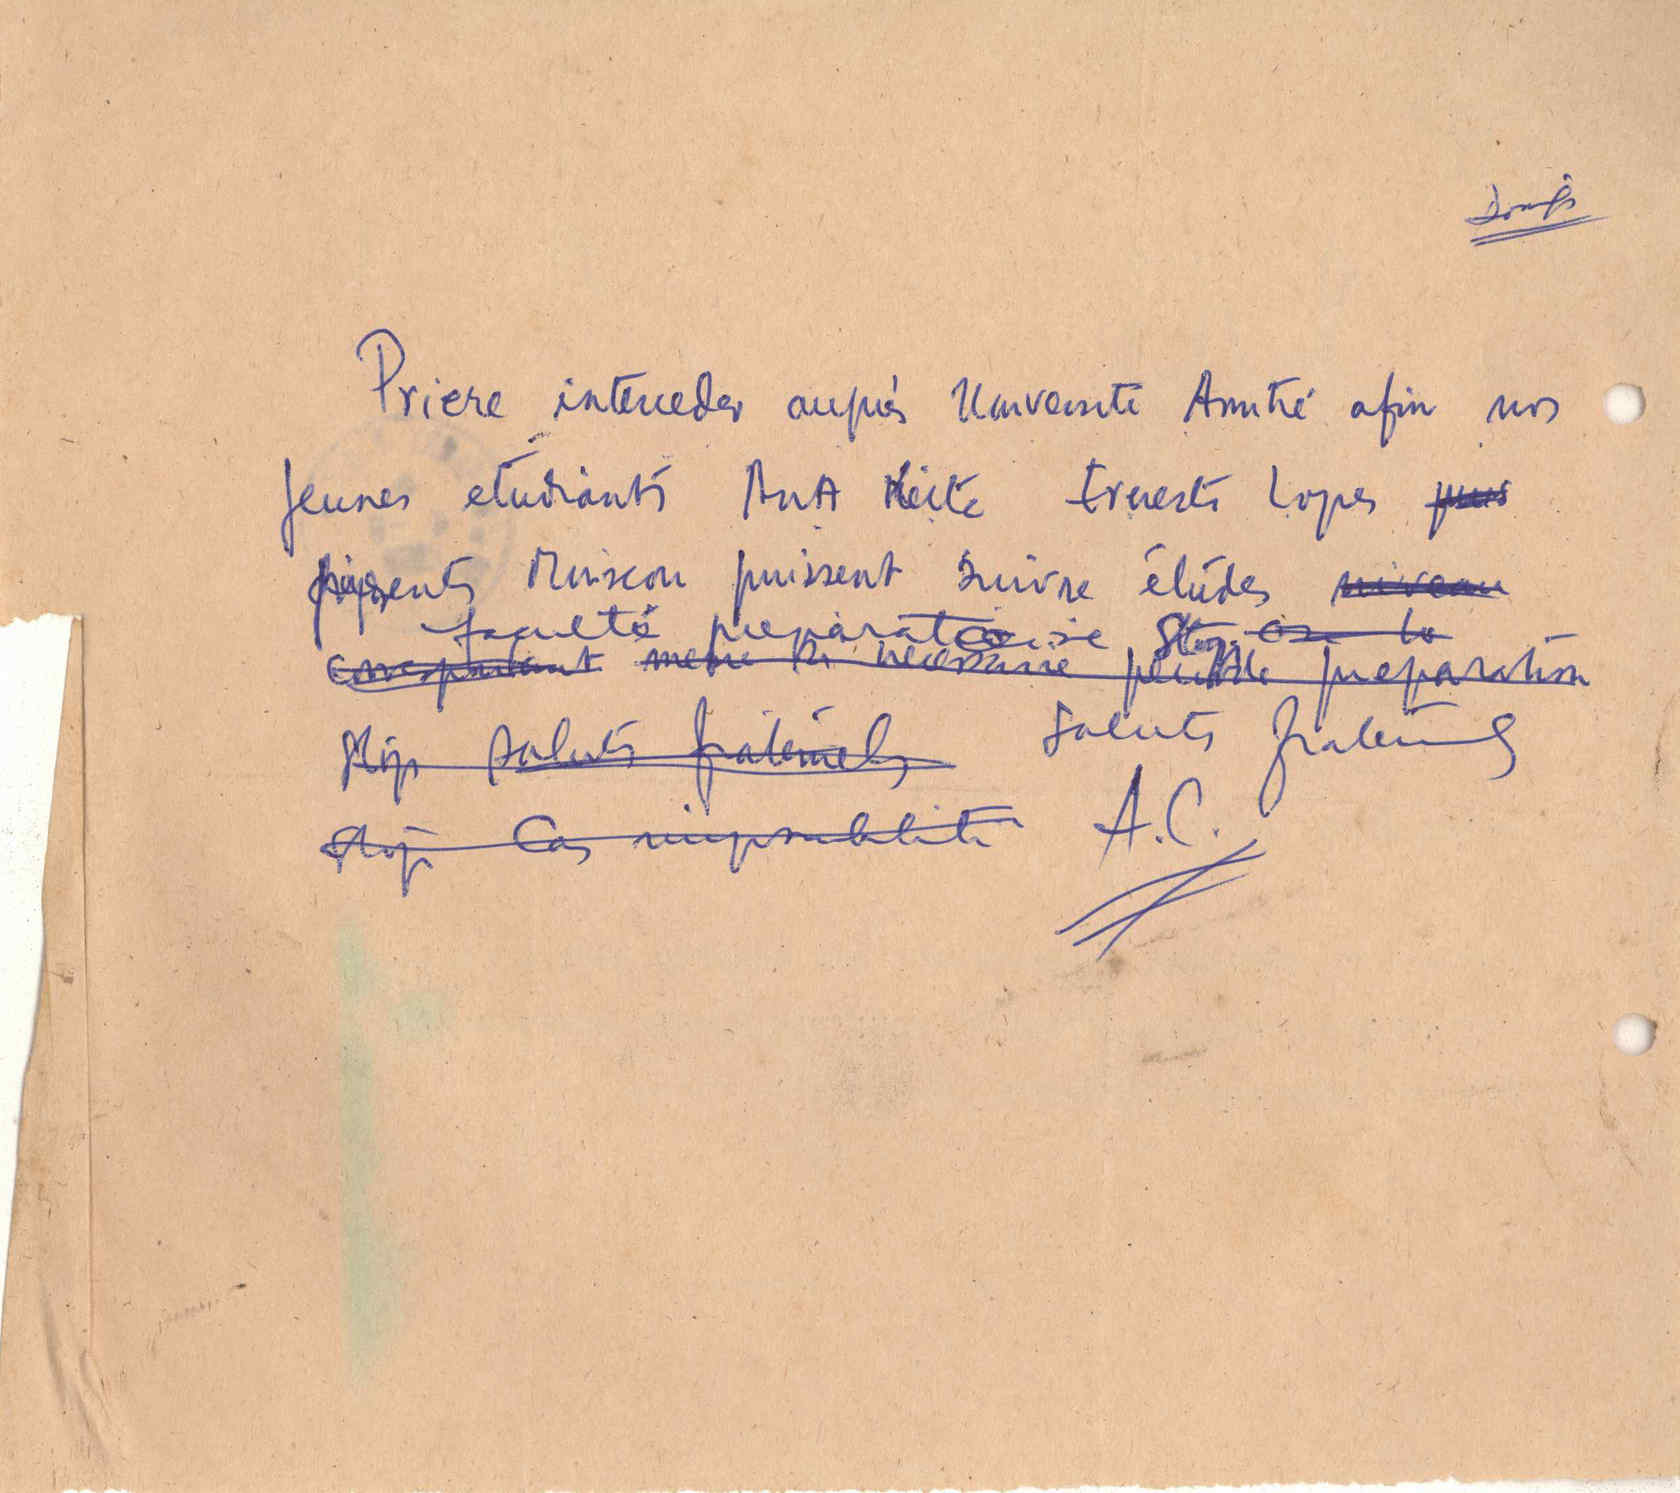 Priere interceder auprés Université Amitié afin nos
jeunes etudiants AnA Leite Ernesto Lopes
présents Moscou puissent suivre études niveau
faculté preparatoire Stop
correspondant meme si necessaire preparation
Stop saluts fraternels saluts fraternels
Stop Cas impossibilité A.C.